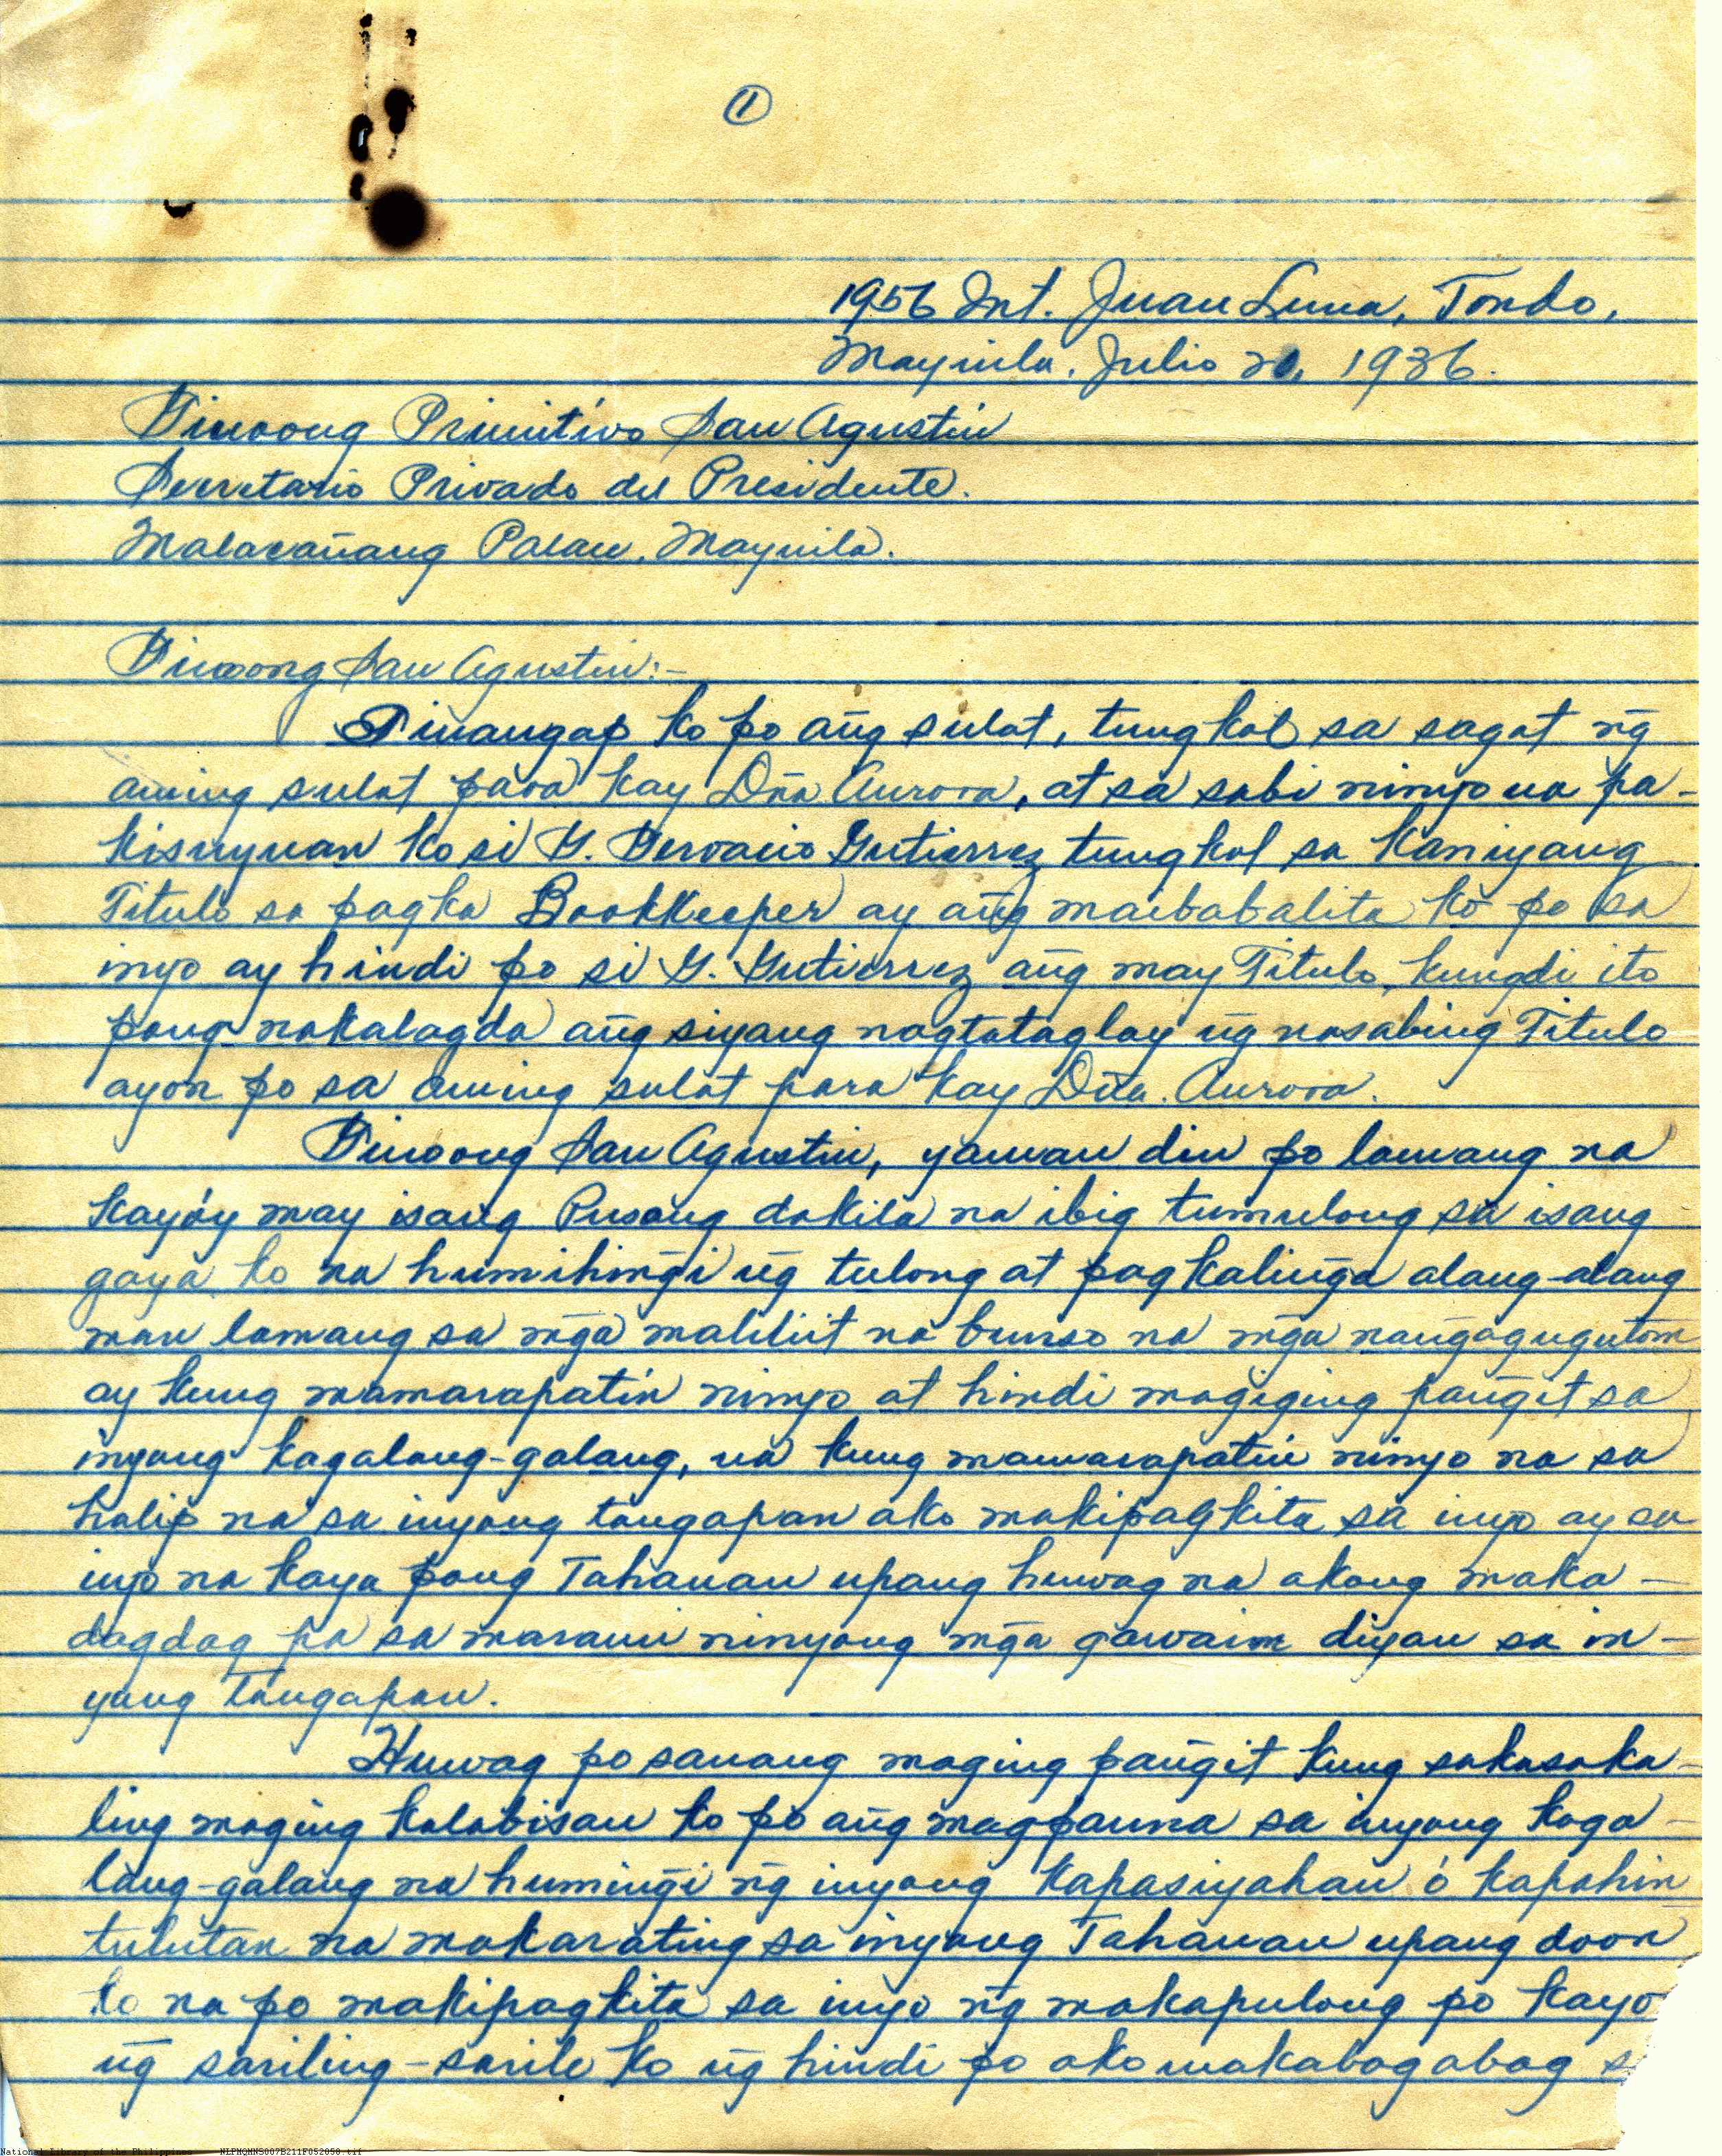 1
1956 Int. Juan Luna, Tondo,
Maynila. Julio 20, 1936.
Ginoong Primitivo San Agustin
Secretario Privado del Presidente.
Malacañang Palace, Maynila.
Ginoong San Agustin:-
Tinangap ko po ang̃ sulat, tungkol sa sagot ng̃
aming sulat para kay Dña Aurora, at sa sabi ninyo na pa-
kisuyuan ko si G. Gervacio Gutierrez tungkol sa kaniyang
Titulo sa pagka Bookkeeper ay ang̃ maibabalita ko po sa
inyo ay hindi po si G. Gutierrez ang̃ may Titulo, kungdi ito
pong nakalagda ang̃ siyang nagtataglay ng̃ nasabing Titulo
ayon po sa aming sulat para kay Dña. Aurora.
Ginoong San Agustin, yaman din po lamang na
kayóy may isang Pusong dakila na ibig tumulong sa isang
gaya ko na humihing̃i ng̃ tulong at pagkaling̃a alang-alang
man lamang sa mg̃a maliliit na bunso na mg̃a nang̃agugutom
ay kung mamarapatin ninyo at hindi magiging pang̃it sa
inyong kagalang-galang, na kung mamarapatin ninyo na sa
halip na sa inyong tangapan ako makipagkita sa inyo ay sa
inyo na kaya pong Tahanan upang huwag na akong maka-
dagdag pa sa marami ninyong mg̃a gawaim diyan sa in-
yong Tangapan.
Huwag po sanang maging pang̃it kung sakasaka-
ling maging kalabisan ko po ang̃ magpauna sa inyong kaga-
lang-galang na huming̃i ng̃ inyong kapasiyahan ó kapahin
tulutan na makarating sa inyong Tahanan upang doon
ko na po makipagkita sa inyo ng̃ makapulong po kayo
ng̃ sariling-sarile ko ng̃ hindi po ako makabagabag
National Library of the Philippines NLPMQMNS007B211F052050.tif